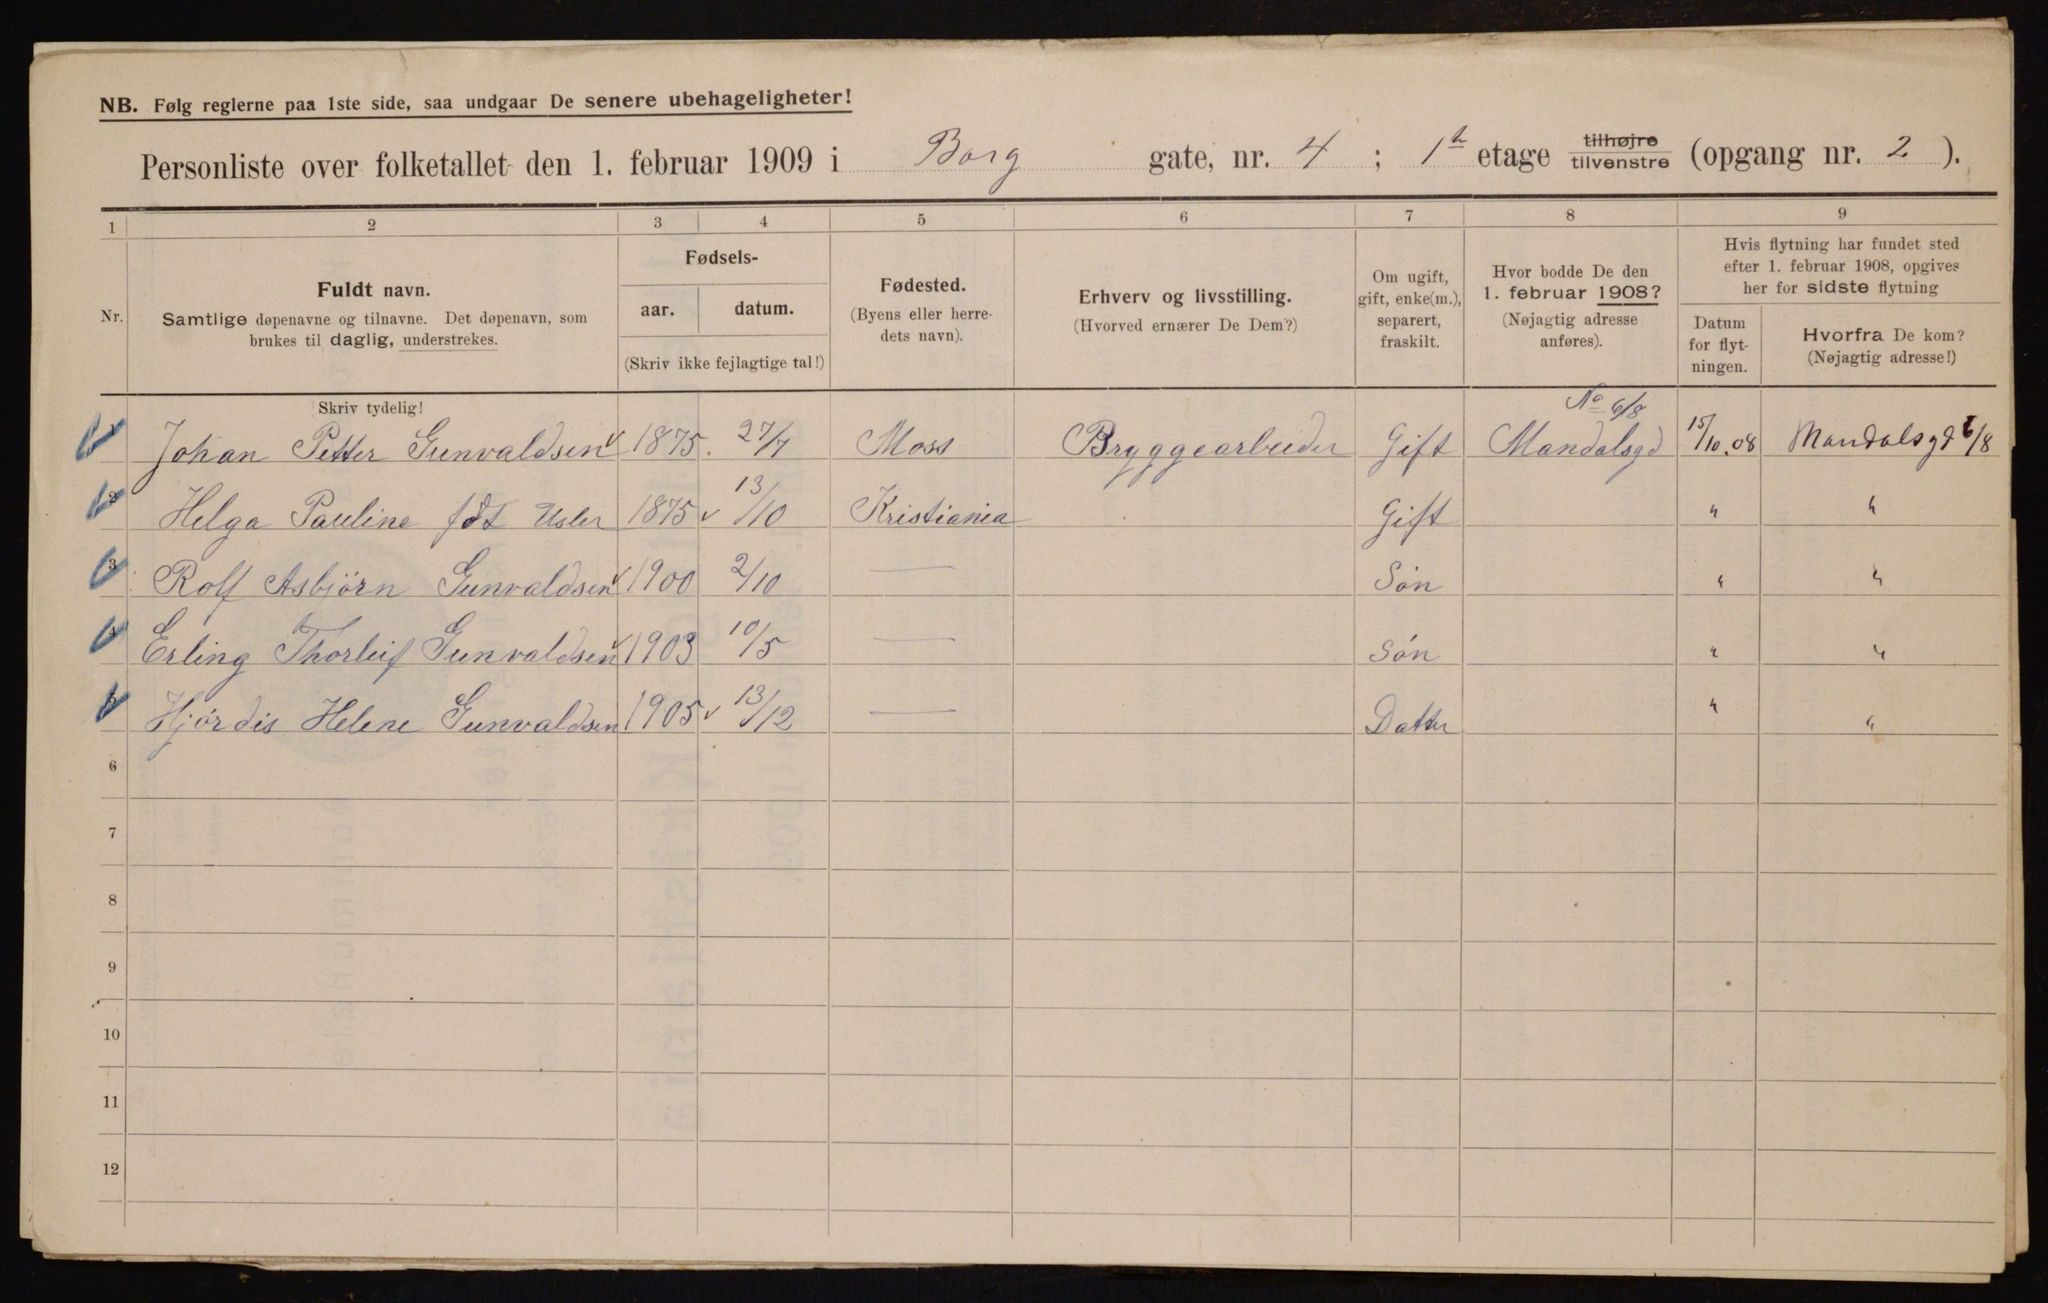 NB. Følg reglerne paa 1ste side, saa undgaar De senere ubehageligheter!
Personliste over folketallet den 1. februar 1909 i Borg gate, nr. 4 ; 1ste etage tilhøjre tilvenstre (opgang nr. 2 ).
1 2 3 4 5 6 7 8 9
Nr.
Fuldt navn.
Samtlige døpenavne og tilnavne. Det døpenavn, som
brukes til daglig, understrekes.
Fødsels-
aar. datum.
(Skriv ikke fejlagtige tal!)
Fødested.
(Byens eller herre-
dets navn).
Erhverv og livsstilling.
(Hvorved ernærer De Dem?)
Om ugift,
gift, enke(m.),
separert,
fraskilt.
Hvor bodde De den
1. februar 1908?
(Nøjagtig adresse
anføres).
Hvis flytning har fundet sted
efter 1. februar 1908, opgives
her for sidste flytning
Datum
for flyt-
ningen.
Hvorfra De kom?
(Nøjagtig adresse!)
Skriv tydelig!
1 Johan Petter Gunvaldsen 1875. 27/7 Moss Bryggearbeider Gift No 6/8 Mandalsgd 15/10.08 Mandalsgd 6/8
2 Helga Pauline født 1875 13/10 Kristiania Gift " "
3 Rolf Asbjörn Gunvaldsen 1900 2/10 — Són " "
4 Erling Thorleif Gunvaldsen 1903 10/5 — Són " "
5 Hjórdis Helene Gunvaldsen 1905 13/12 — Datter " "
6
7
8
9
10
11
12